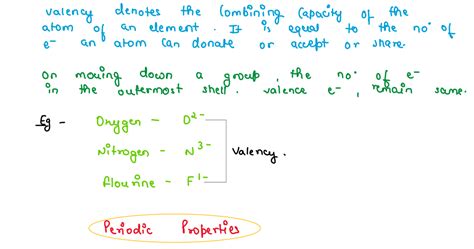 valency denotes the Combining Capacity of the
atom of an element. It is equal to the no. of
e⁻ an atom Can donate or accept or share.
on moving down a group, the no. of e⁻
in the outermost shell. valence e⁻, remain same.
Eg - Oxygen - O²⁻
Nitrogen - N³⁻ Valency.
Flourine - F¹⁻
Periodic Properties